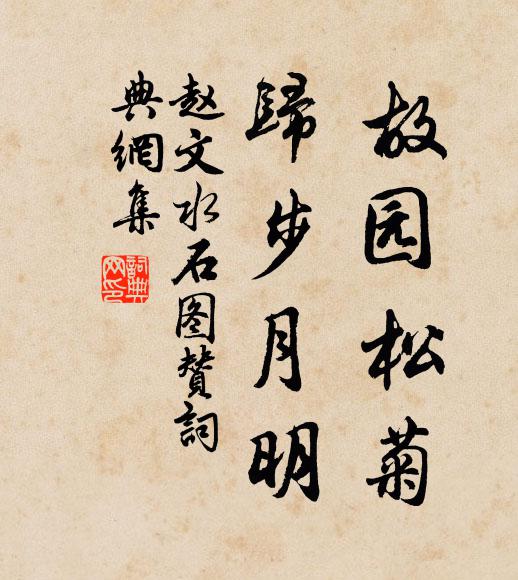 故园松菊
歸步月明
赵文水石图赞詞
典網集
詞典
网印